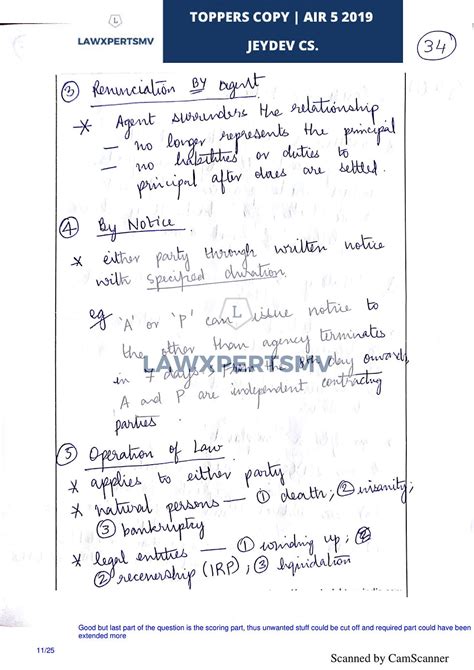 L
LAWXPERTSMV
TOPPERS COPY | AIR 5 2019
JEYDEV CS.
34
③ Renunciation BY agent
* Agent surrenders the relationship
— no longer represents the principal
— no liabilities or duties to
principal after dues are settled.
④ By Notice.
* either party through written notice
with specified duration.
eg 'A' or 'P' can issue notice to
the other than agency terminates
in 7 days. From the 8th day onwards
A and P are independent contracting
parties.
L
LAWXPERTSMV
⑤ Operation of Law
* applies to either party
* natural persons — ① death; ② insanity;
③ bankruptcy
* legal entities — ① winding up; ②
② recenership (IRP); ③ liquidation
Good but last part of the question is the scoring part, thus unwanted stuff could be cut off and required part could have been
extended more
11/25
Scanned by CamScanner